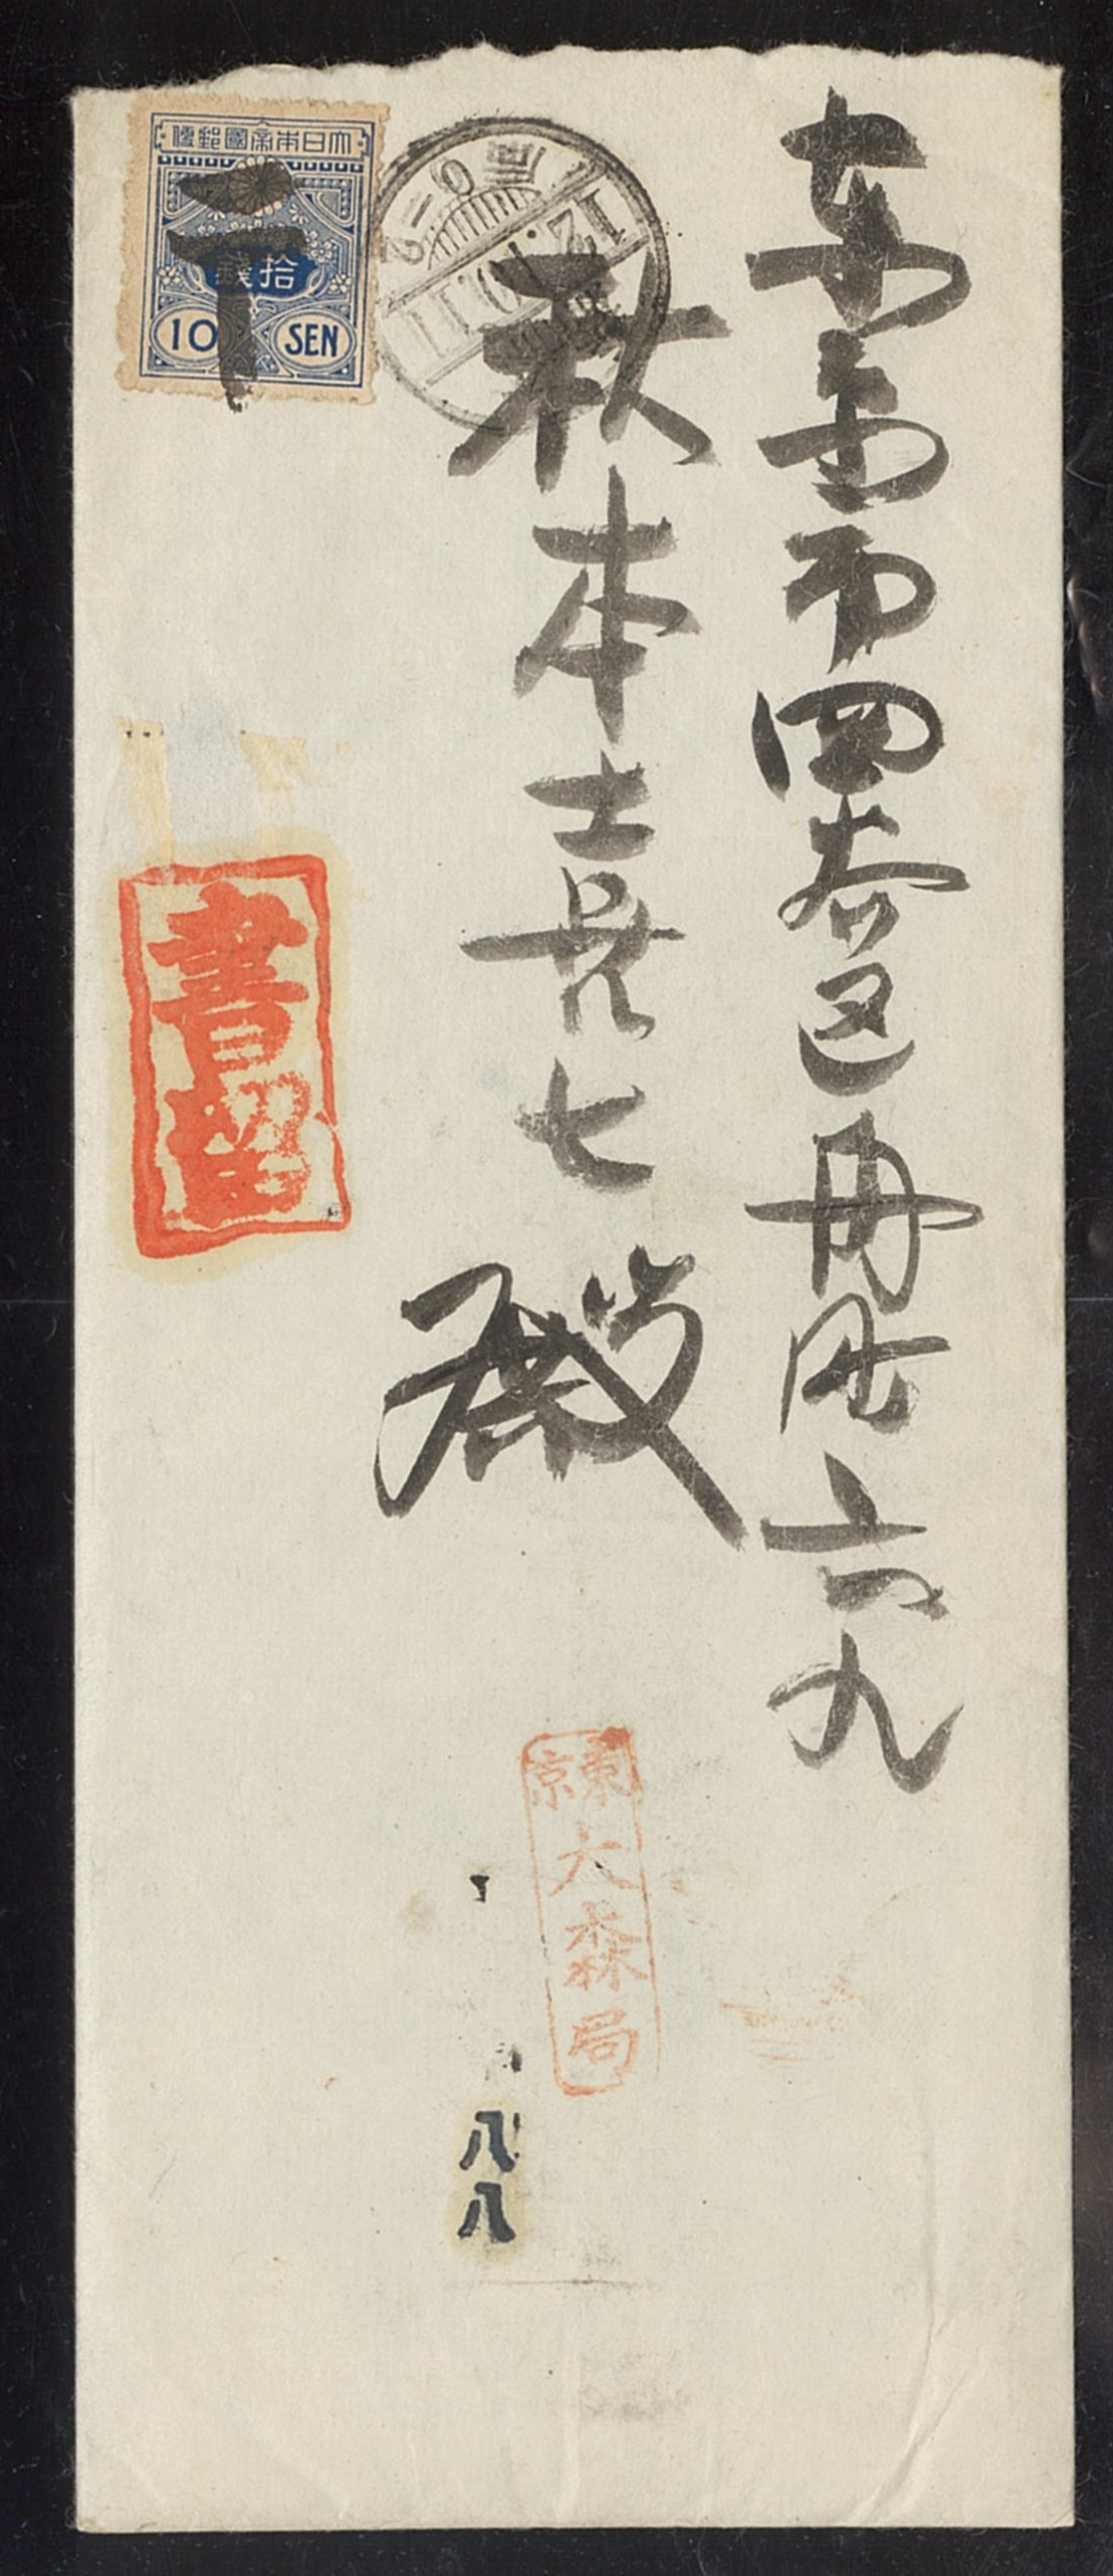 東京市四谷区舟町六九
秋本
七
殿
大日本帝國郵便
拾錢
10 SEN
12.10.11
書留
東京
大森局
八八